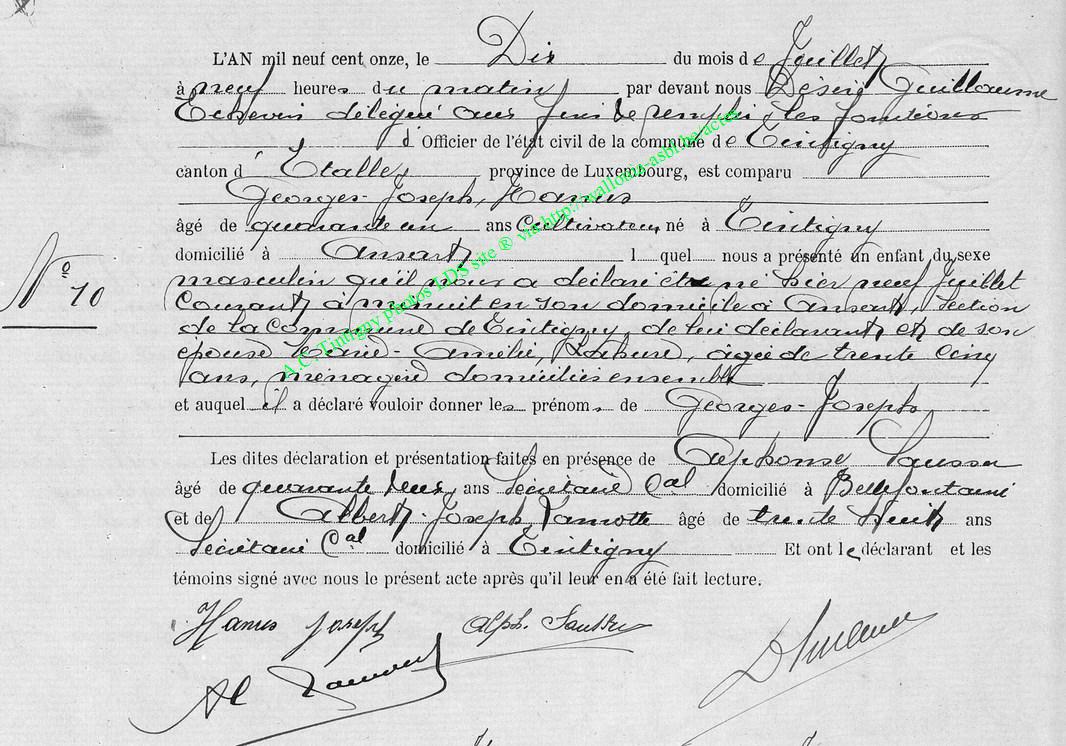 L'AN mil neuf cent onze, le Dix du mois de Juillet
à neuf heures du matin par devant nous Désiré Guillaume
Echevin délégué aux fins de remplir les fonctions
d'Officier de l'état civil de la commune de Tintigny
canton d'Etalle, province de Luxembourg, est comparu
Georges-Joseph, Hanus
âgé de quarante un ans Cultivateur né à Tintigny
domicilié à Ansart lequel nous a présenté un enfant du sexe
N° 10
masculin qu'il nous a déclaré être né hier neuf Juillet
courant à minuit en son domicile à Ansart, section
de la commune de Tintigny, de lui déclarant et de son
épouse Marie-Amélie, âgée de trente cinq
ans, ménagère domiciliés ensemble
et auquel il a déclaré vouloir donner les prénoms de Georges-Joseph
Les dites déclaration et présentation faites en présence de Alphonse
âgé de quarante deux ans Secrétaire Cal domicilié à Bellefontaine
et de Albert-Joseph, Lamotte âgé de trente huit ans
Secrétaire Cal domicilié à Tintigny Et ont le déclarant et les
témoins signé avec nous le présent acte après qu'il leur en a été fait lecture.
Hanus Joseph Alph.
Al
A.C. Tintigny photos LDS site ® via http://wallonia-asbl.be/actes